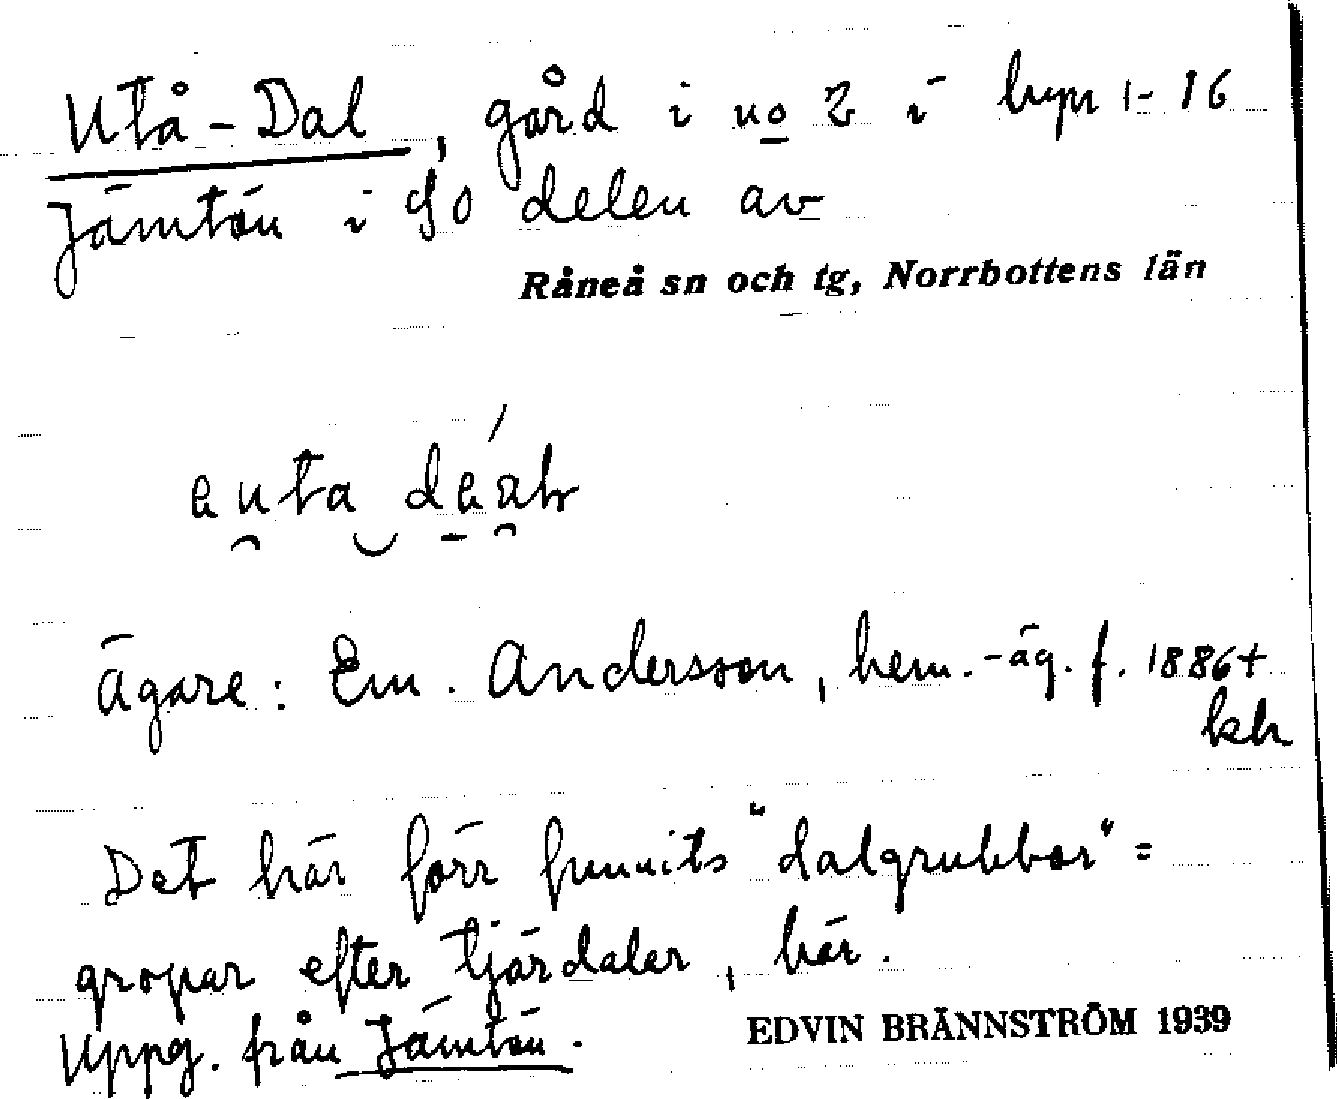 Utå-Dal, gård i no 2 i byn 1-16
Jämtön i SO delen av
Råneå sn och tg, Norrbottens län
Ägare: Em. Andersson, hem.-äg. f. 1886 +
kh
Det här förr funnits "dalgrubbor" =
gropar efter tjärdaler, här.
Uppg. från Jämtön.
EDVIN BRÄNNSTRÖM 1939